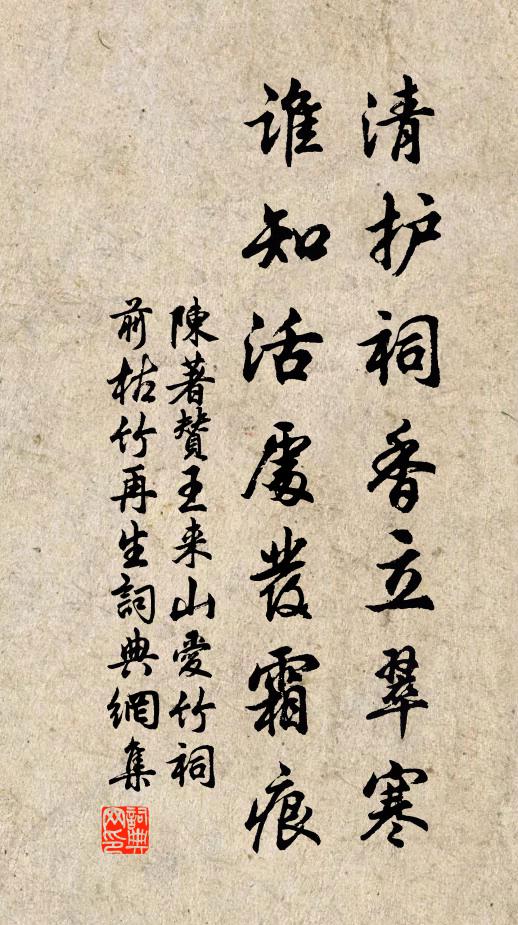 清护祠香立翠寒
谁知活處发霜痕
陳著贊王来山愛竹祠
前枯竹再生詞典網集
詞典网印